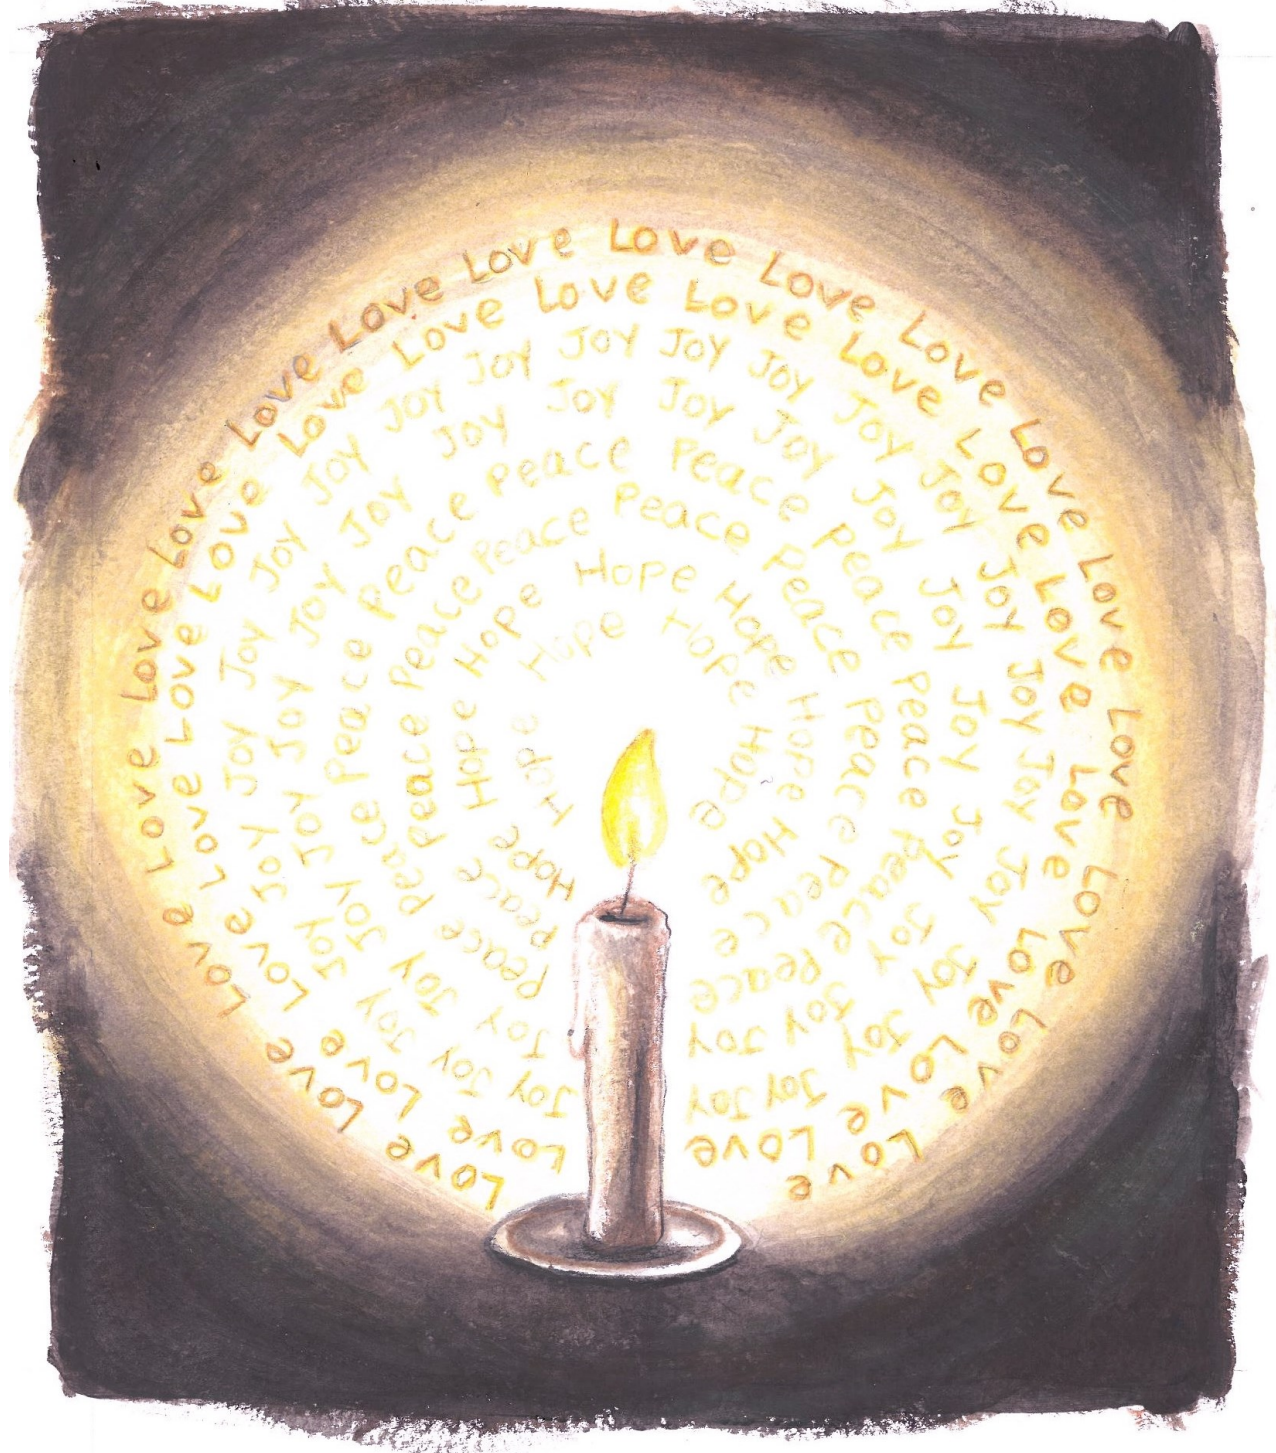 Love Love Love Love Love Love Love Love Love Love Love Love Love Love Love Love Love Love
Love Love Love Love Love Love Love Love Love Love Love Love Love Love Love Love Love
Joy Joy Joy Joy Joy Joy Joy Joy Joy Joy Joy Joy Joy Joy Joy Joy Joy Joy Joy Joy Joy Joy Joy Joy
Joy Joy Joy Joy Joy Joy Joy Joy Joy Joy Joy Joy Joy Joy Joy Joy Joy Joy
Peace Peace Peace Peace Peace Peace Peace Peace Peace Peace
Peace Peace Peace Peace Peace Peace Peace Peace
Hope Hope Hope Hope Hope Hope Hope
Hope Hope Hope Hope